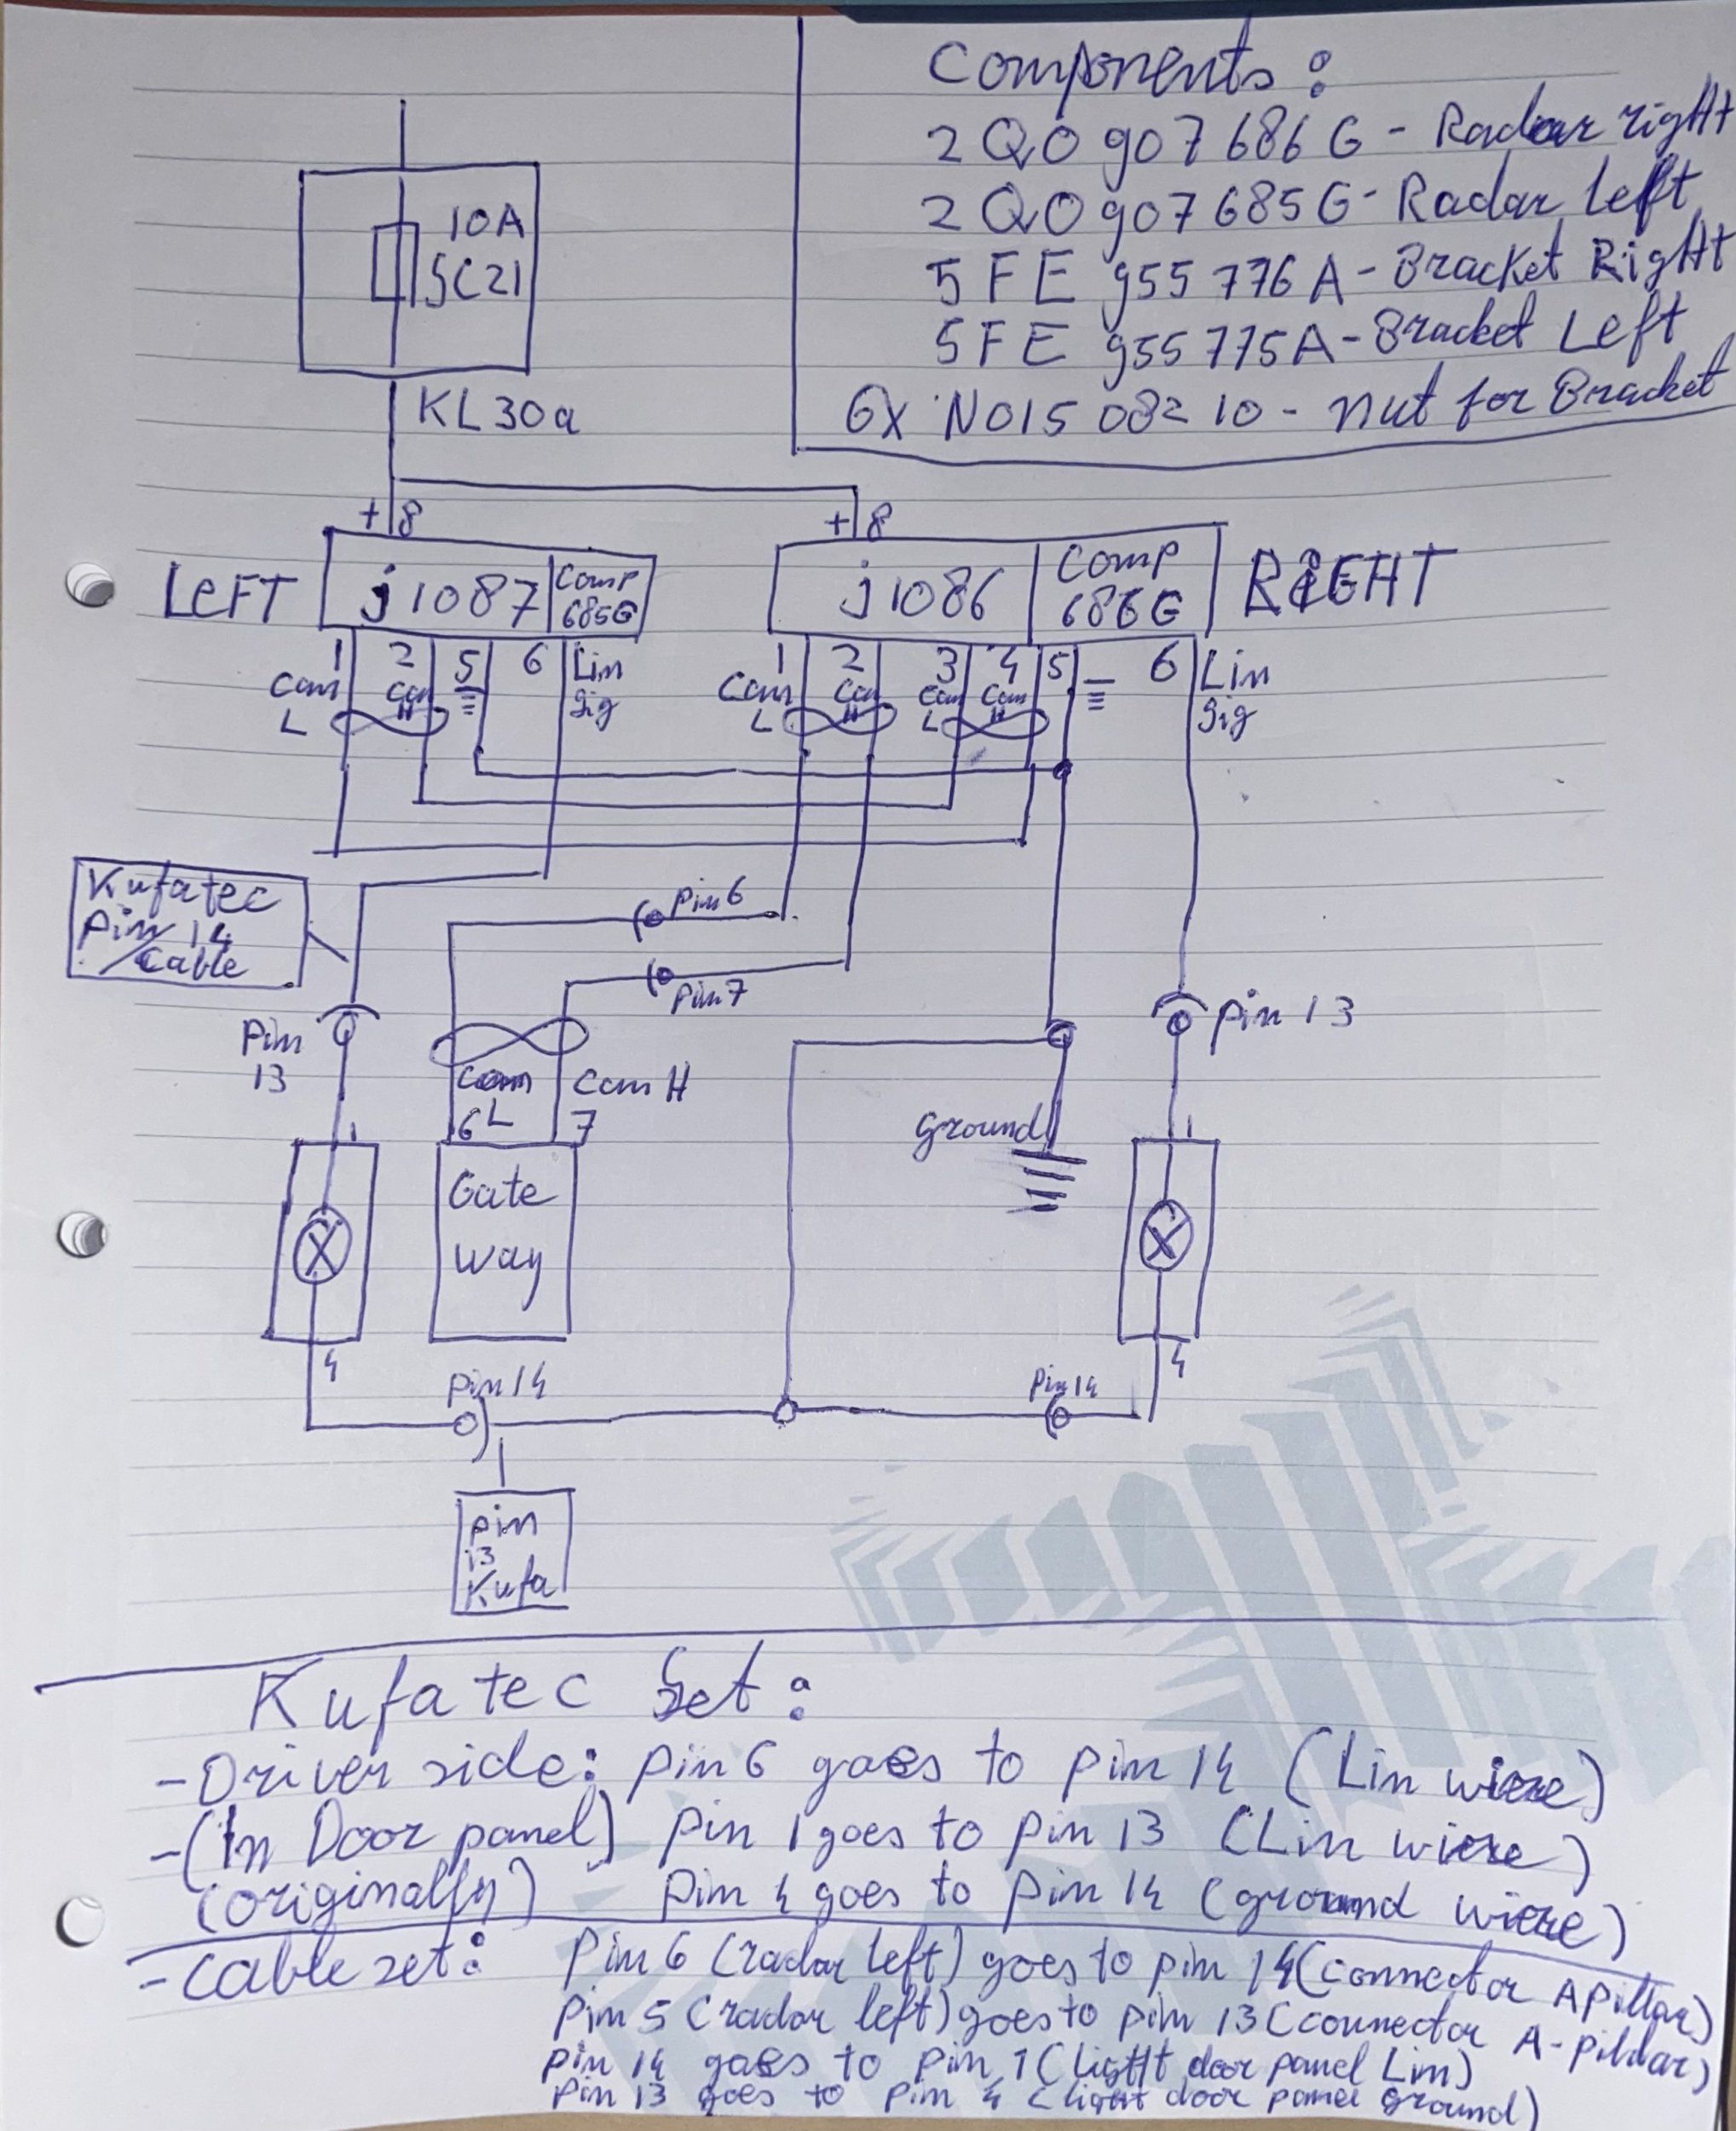 Components :
2Q0 907 686 G - Radar right
2Q0 907 685 G - Radar left
5FE 955 776 A - Bracket Right
5FE 955 775 A - Bracket Left
6x N015 082 10 - nut for Bracket
10A
SC21
KL30a
+ 8
+ 8
LEFT
j1087
Comp
685G
j1086
Comp
686G
RIGHT
1 2 5 6 Lin
Sig
Can
L
Can
H
1 2 3 4 5 6 Lin
Sig
Can
L
Can
H
Can
L
Can
H
Kufatec
Pin 14
Cable
Pin 6
Pin 7
Pin
13
Pin 13
Can
L
Can H
6 7
1
Gate
way
ground
1
4
Pin 14
Pin 14
4
pin
13
Kufa
Kufatec Set :
- Driver side: pin 6 goes to pin 14 (Lin wiere)
- (In Door panel) pin 1 goes to pin 13 (Lin wiere)
(originally) pin 4 goes to pin 14 (ground wiere)
- Cable set: Pin 6 (radar left) goes to pin 14 (connector A Pillar)
Pin 5 (radar left) goes to pin 13 (connector A-pillar)
pin 14 goes to pin 1 (light door panel Lin)
Pin 13 goes to pin 4 (light door panel ground)